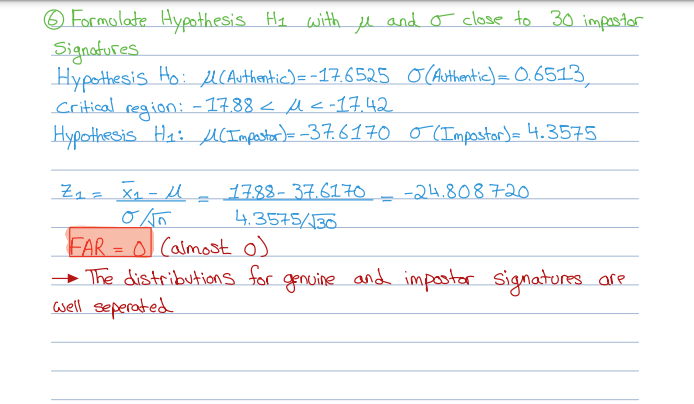 ⑥ Formulate Hypothesis H1 with μ and σ close to 30 impostor
Signatures
Hypothesis H0: μ(Authentic)= -17.6525 σ(Authentic)= 0.6513,
Critical region: -17.88 < μ < -17.42
Hypothesis H1: μ(Impostor)= -37.6170 σ(Impostor)= 4.3575
Z1 = (x̄1 - μ)/(σ/√n) = (17.88 - 37.6170)/(4.3575/√30) = -24.808720
FAR = 0 (almost 0)
→ The distributions for genuine and impostor signatures are
well seperated